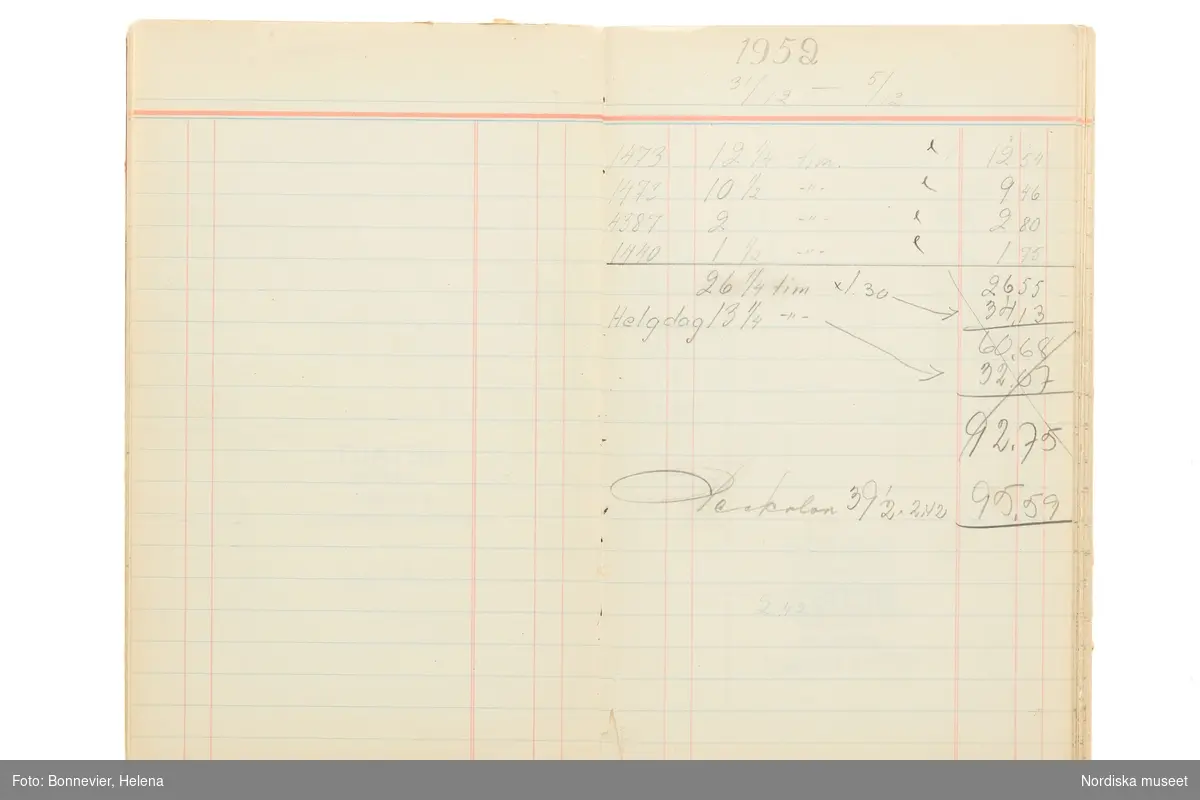 1952
31/12 — 5/12
1473 12 1/4 tim. 12 54
1472 10 1/2 -"- 9 46
4387 2 -"- 2 80
1440 1 1/2 -"- 1 75
26 1/4 tim x 1 30 26 55
34,13
Helgdag 13 1/4 -"-
60,68
32,07
92.75
39 1/2 . 2.42 95,59
2 42
Foto: Bonnevier, Helena
Nordiska museet